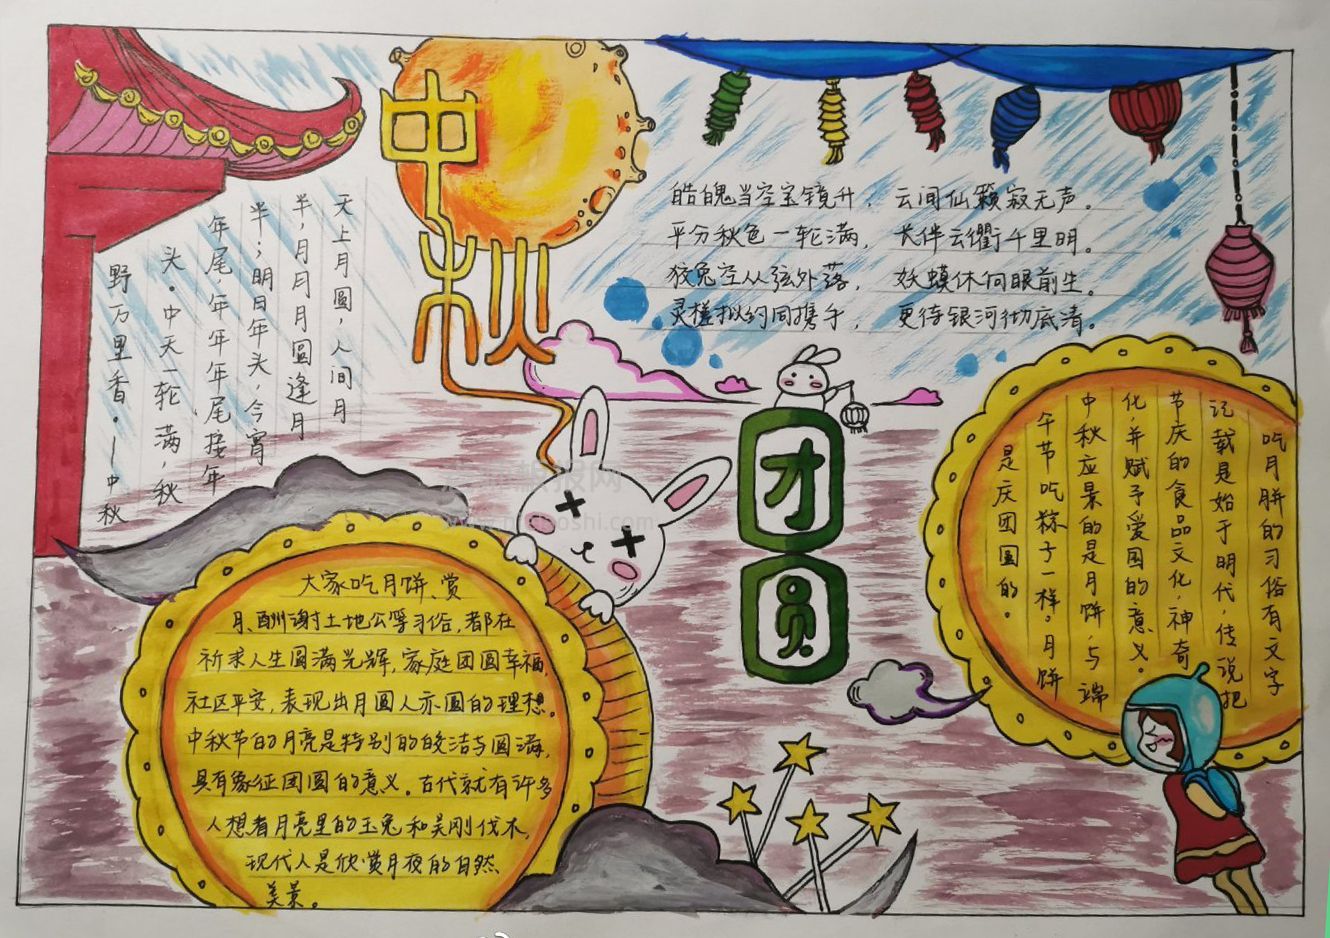 中秋
天上月圆，人间月
半，月月月圆逢月
半；明日年头，今宵
年尾，年年年尾接年
头。中天一轮满，秋
野万里香。—中秋
皓魄当空宝镜升，云间仙籁寂无声。
平分秋色一轮满，长伴云衢千里明。
狡兔空从弦外落，妖蟆休向眼前生。
灵槎拟约同携手，更待银河彻底清。
团
圆
吃月饼的习俗有文字
记载是始于明代，传说把
节庆的食品文化，神奇
化，并赋予爱国的意义。
中秋应景的是月饼，与端
午节吃粽子一样，月饼
是庆团圆的。
大家吃月饼、赏
月、酬谢土地公等习俗，都在
祈求人生圆满光辉，家庭团圆幸福，
社区平安，表现出月圆人亦圆的理想。
中秋节的月亮是特别的皎洁与圆满，
具有象征团圆的意义。古代就有许多
人想着月亮里的玉兔和吴刚伐木，
现代人是欣赏月夜的自然
美景。